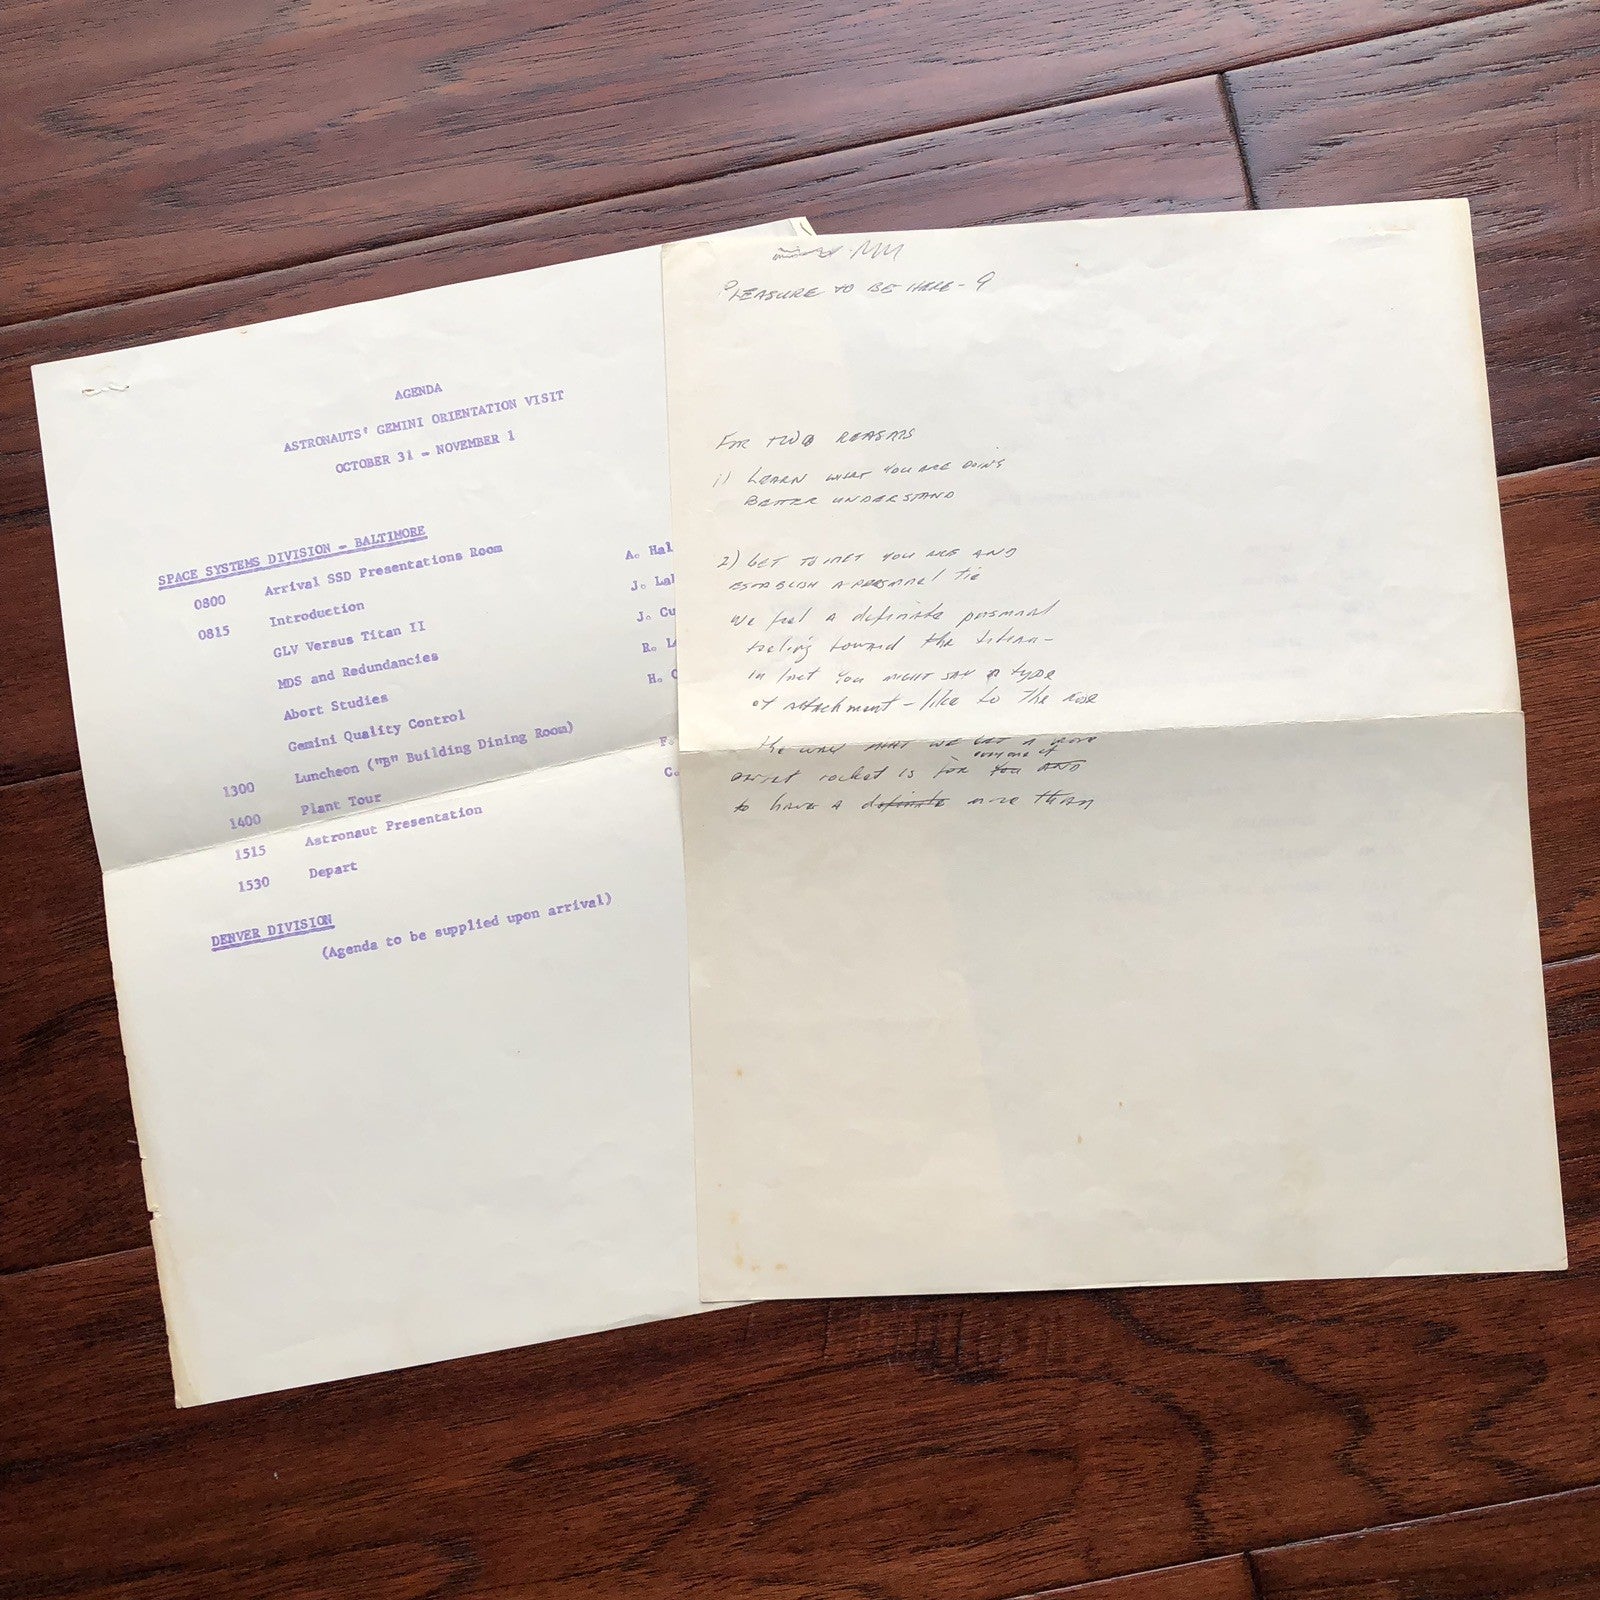 AGENDA
ASTRONAUTS' GEMINI ORIENTATION VISIT
OCTOBER 31 - NOVEMBER 1
SPACE SYSTEMS DIVISION - BALTIMORE
0800 Arrival SSD Presentations Room A. Hal
0815 Introduction J. Lal
GLV Versus Titan II J. Cu
MDS and Redundancies R. L
Abort Studies H. C
Gemini Quality Control
1300 Luncheon ("B" Building Dining Room) F.
1400 Plant Tour C.
1515 Astronaut Presentation
1530 Depart
DENVER DIVISION
(Agenda to be supplied upon arrival)
PLEASURE TO BE HERE - 9
FOR TWO REASONS
1) LEARN WHAT YOU ARE DOING
BETTER UNDERSTAND
2) GET TO MEET YOU ALL AND
ESTABLISH A PERSONAL tie
We feel a definite personal
feeling toward the titan -
in fact YOU MIGHT SAY A type
of attachment - like to the
the way that we get a more
rocket is for everyone of you AND
to have a definite more than